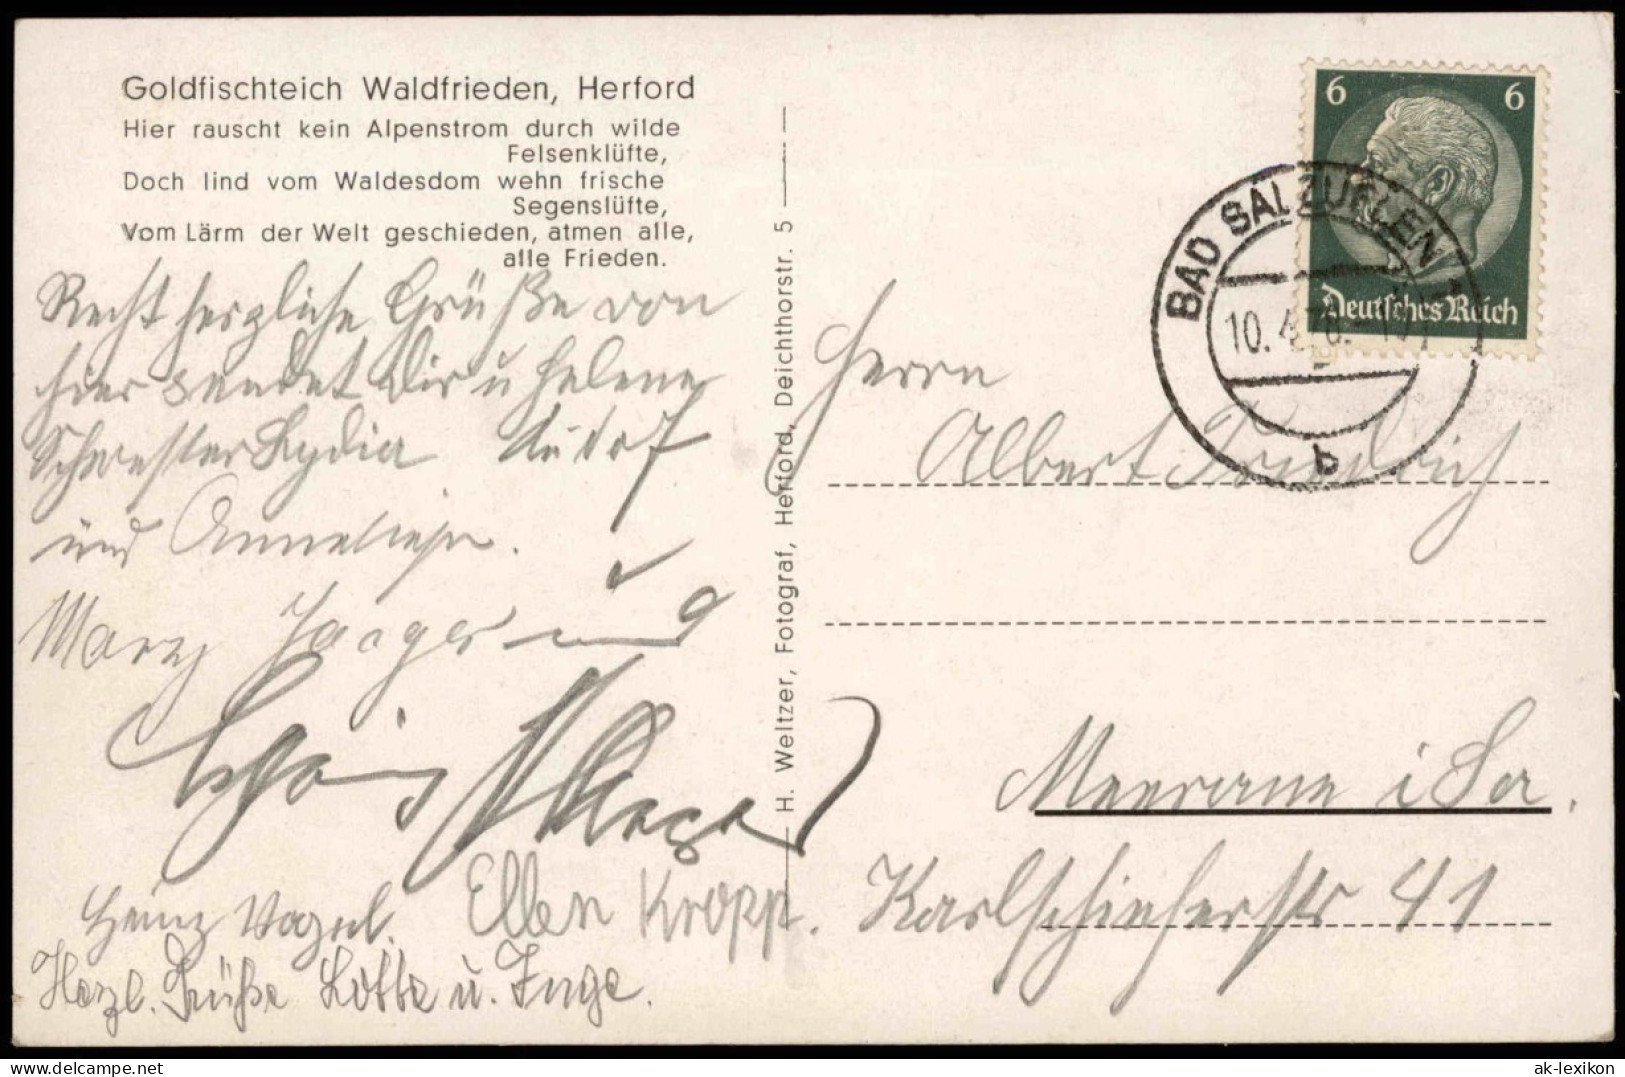 Goldfischteich Waldfrieden, Herford
Hier rauscht kein Alpenstrom durch wilde
Felsenklüfte,
Doch lind vom Waldesdom wehn frische
Segenslüfte,
Vom Lärm der Welt geschieden, atmen alle,
alle Frieden.
Recht herzliche Grüße von
hier sendet Dir u Helene
Schwester Lydia
und Anneliese.
Mary Jaeger und
Heinz Vogel.
Ellen Kropp.
Herzl. Grüße Lotte u. Inge.
H. Weltzer, Fotograf, Herford, Deichthorstr. 5
6 6
Deutsches Reich
BAD SALZUFLEN
10. 4.
b
Herrn
Albert Friedrich
Meerane i Sa.
Karlschieferstr 41
ak-lexikon